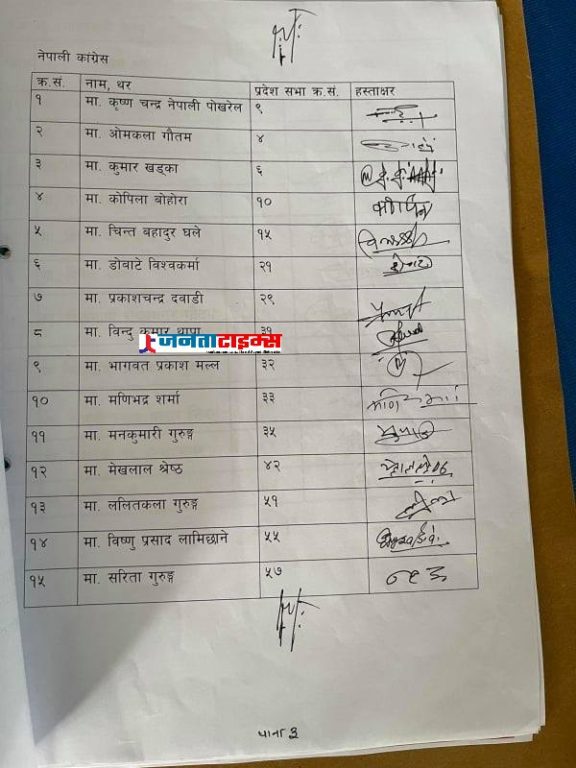 नेपाली कांग्रेस
क्र.सं. नाम, थर प्रदेश सभा क्र.सं. हस्ताक्षर
१ मा. कृष्ण चन्द्र नेपाली पोखरेल ९
२ मा. ओमकला गौतम ४
३ मा. कुमार खड्का ६
४ मा. कोपिला बोहोरा १०
५ मा. चिन्त बहादुर घले १५
६ मा. डोवाटे विश्वकर्मा २१
७ मा. प्रकाशचन्द्र दवाडी २९
८ मा. विन्दु कुमार थापा ३१
जनता टाइम्स
९ मा. भागवत प्रकाश मल्ल ३२
१० मा. मणिभद्र शर्मा ३३
११ मा. मनकुमारी गुरुङ्ग ३५
१२ मा. मेखलाल श्रेष्ठ ४२
१३ मा. ललितकला गुरुङ्ग ५१
१४ मा. विष्णु प्रसाद लामिछाने ५५
१५ मा. सरिता गुरुङ्ग ५७
पाना 3